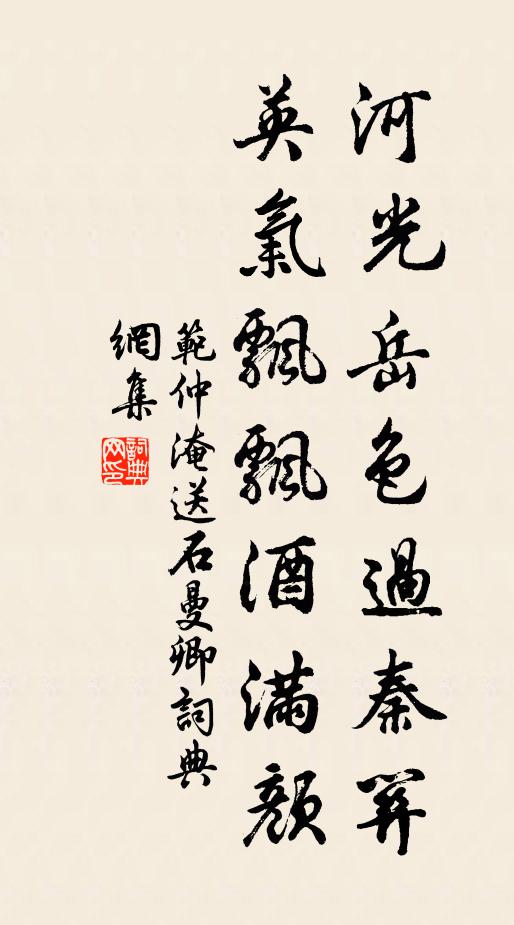 河光岳色過秦關
英氣飄飄酒滿顏
範仲淹送石曼卿詞典
網集
詞典網印